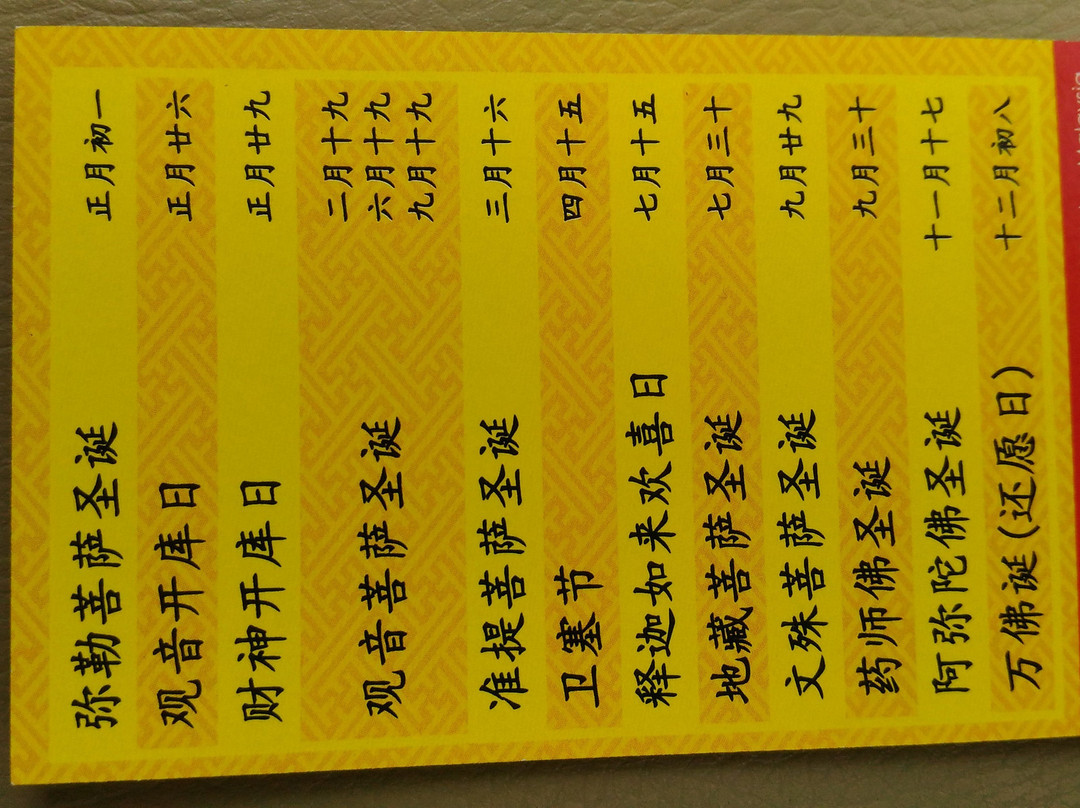 弥勒菩萨圣诞 正月初一
观音开库日 正月廿六
财神开库日 正月廿九
观音菩萨圣诞 二月十九
六月十九
九月十九
准提菩萨圣诞 三月十六
卫塞节 四月十五
释迦如来欢喜日 七月十五
地藏菩萨圣诞 七月三十
文殊菩萨圣诞 九月廿九
药师佛圣诞 九月三十
阿弥陀佛圣诞 十一月十七
万佛诞(还愿日) 十二月初八